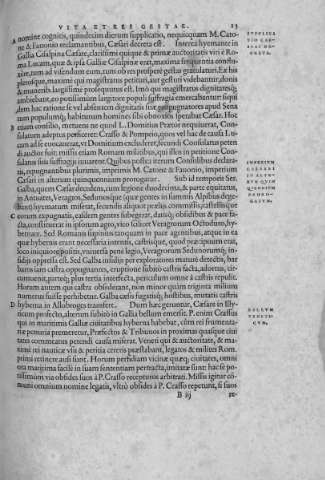 VITA ET RES GESTAE. 13
A nomine cognitis, quindecim dierum supplicatio, nequicquam M. Cato-
ne & Fauonio reclamantibus, Cæsari decreta est. Inerea hyemante in
Gallia Cisalpina Cæsare, clarissimi quique & primæ auctoritatis viri è Ro-
ma Lucam, quæ & ipsa Galliæ Cisalpinæ erat, maxima
iam, tum ad videndum eum, tum ob res prospere gestas gratulaturi. Ex his
plerosque, maxime qui magistratus petituri, aut gesturi videbantur, donis
& muneribus largissime prosequutus est. Imo qui magistratus dignitatemque
ambiebant, eo potissimum largitore populi suffragia emercabantur: sique
dem hac ratione se vel absentem dignitatis suæ propugnatores apud Sena-
tum populumque, habiturum homines sibi obnoxios sperabat Cæsar. Hoc
B etiam consilio, metuens ne quod L. Domitius Prætor nequiuerat, Con-
sulatum adeptus perficeret: Crasso & Pompeio, quos vel hac de causa Lu-
cam ad se euocauerat, vt Domitium excluderent, secundi Consulatus petendi
auctor fuit: missis etiam Romam militibus, qui ipsos in petitione Con-
sulatus suis suffragiis iuuarent. Quibus positei iterum Consulibus declara-
tis, repugnantibus plurimis, inprimis M. Catone & Fauonio, imperium
Cæsari in alterum quinquennium prorogatur. Sub id temporis Ser.
Galba, quem Cæsar decedens, cum legione duodecima, & parte equitatus,
in Antuates, Veragros, Sedunosque (quæ gentes in summis Alpibus dege-
bant) hyematum miserat, secundis aliquot præliis commissis, castellisque
C eorum expugnatis, easdem gentes subegerat, datisque obsidibus & pace fa-
cta, constituerat in ipsorum agro, vico scilicet Veragrorum Octodurum, hy-
bernare. Sed Romani supinius tanquam in pace agentibus, atque in ea
quæ hybernis erant necessaria intentis, castrisque, quod præcipuum erat,
loco iniquiore positis, vniuersa pene legio, Veragrorum Sedunorumque, in-
sidiis oppressa est. Sed Galba insidiis per exploratores mature detectis, bar
baros iam castra oppugnantes, eruptione subitò castris facta, adortus, cir-
cumuenit, partemque plus tertia interfecta, periculum omne à castris repulit.
Horam autem qui castra obsiderant, non minor quàm triginta millium
numerus fuisse perhibetur. Galba casis fugatisque hostibus, mutatis castris
D hyberna in Allobroges transfert. Dum hæc geruntur, Cæsari in Illy-
ricum profecto, alterum subitò in Gallia bellum emersit. P. enim Crassus
qui in maritimis Galliæ ciuitatibus hyberna habebat, cùm rei frumenta-
riæ penuria premeretur, Præfectos & Tribunos in proximas quasque ciui
tates commeatus petendi causa miserat. Veneti qui & auctoritate, & ma-
ximi rei nauticæ vsu & peritia cæteris præstabant, legatos & milites Rom.
primi retinere ausi sunt. Horum perfidiam vicinæ quæque ciuitates, omni
ora maritima facile in suam sententiam pertracta, imitatæ sunt: hac se po-
tissimum via obsides suos à P. Crasso recepturos arbitrati. Missis igitur cō-
muni omnium nomine legatis, vltrò obsides à P. Crasso repetunt, si suos
B iij re-
SVPPLICA
TIO CAE-
SARI DE-
CRETA.
IMPERIVM
CAESARI
IN ALTE-
RVM QVIN
QVENNIVM
PROROGA-
TVM.
BELLVM
VENETI-
CVM.